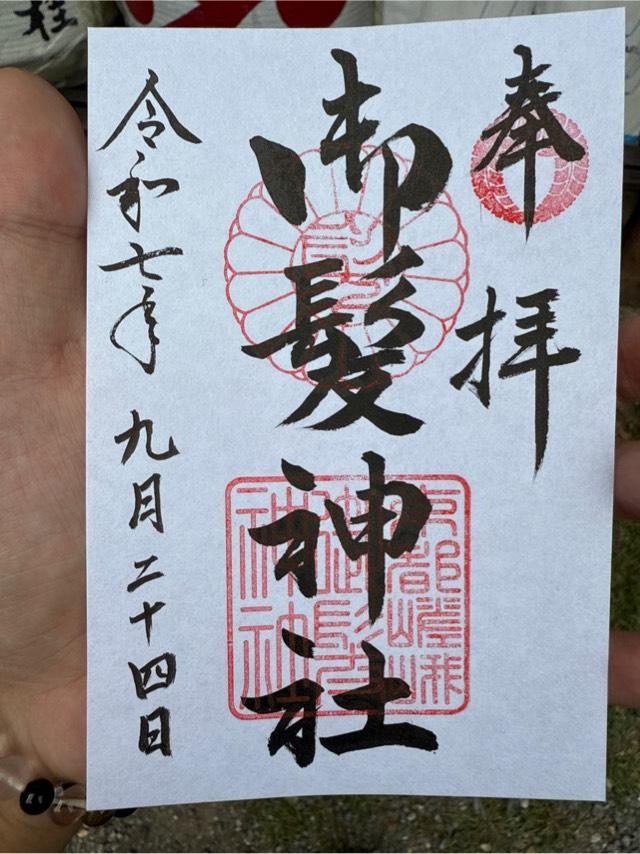 奉拝
御髪神社
令和七年 九月二十四日
京都嵯峨
御髪
神社